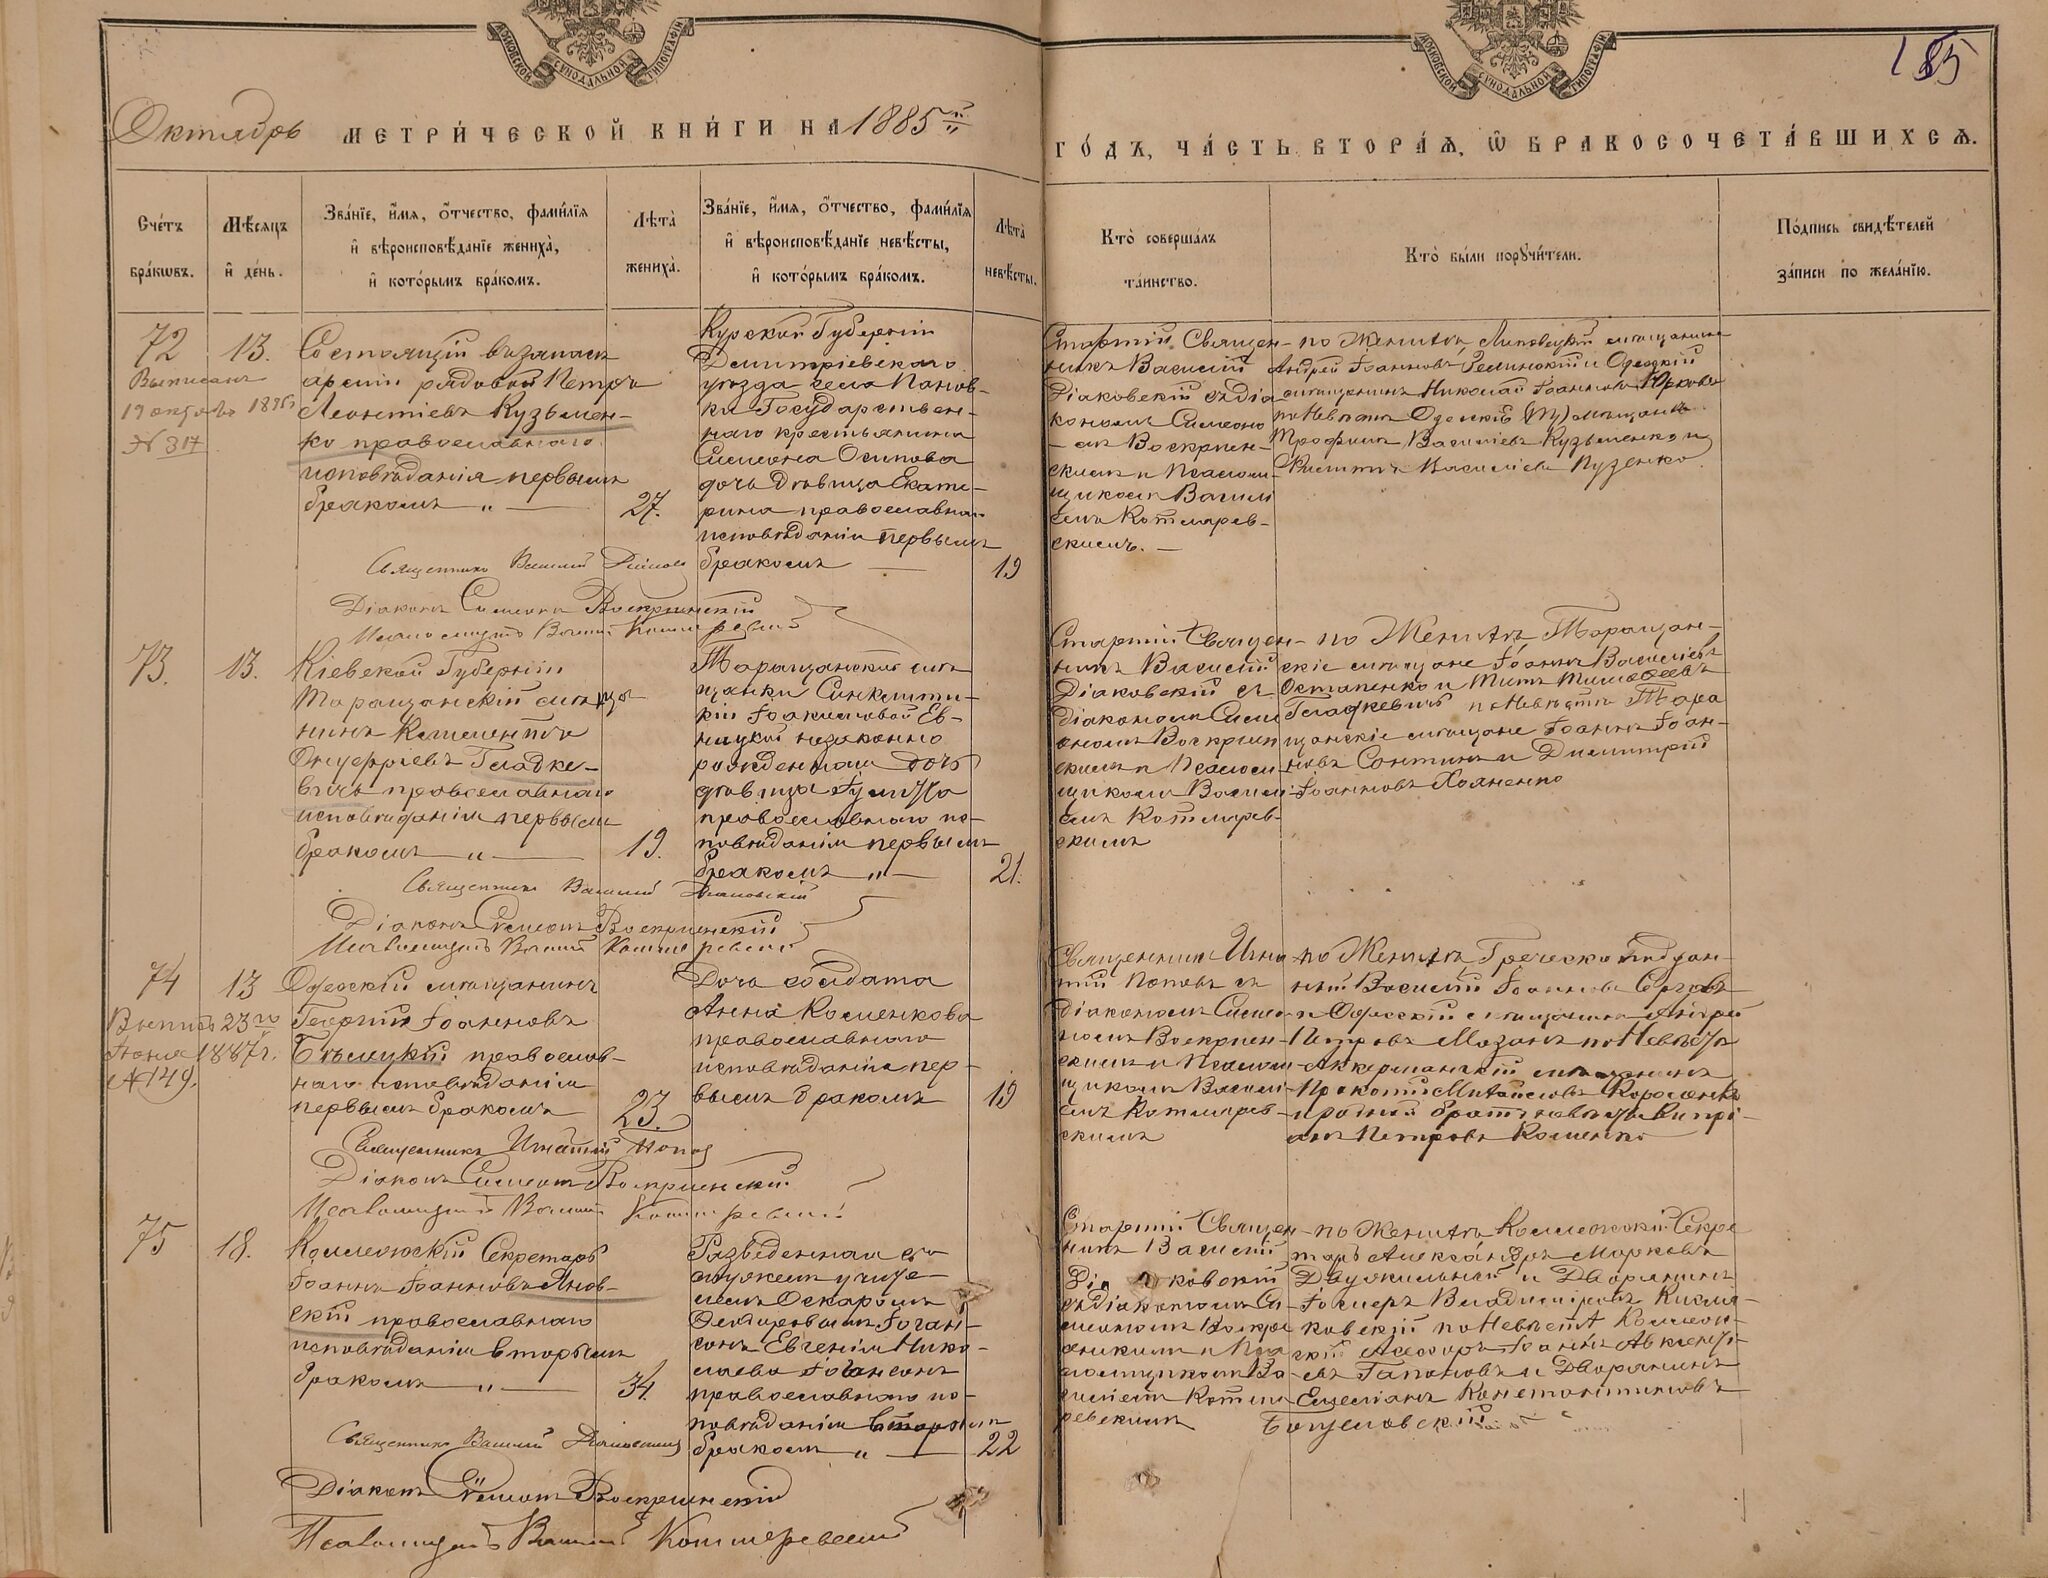 МОСКОВСКОЙ СѴНОДАЛЬНОЙ ТИПОГРАФІИ
МОСКОВСКОЙ СѴНОДАЛЬНОЙ ТИПОГРАФІИ
185
Октябрь МЕТРИ́ЧЕСКОЙ КНИ́ГИ НА 1885й
ГО́ДЪ, ЧА́СТЬ ВТОРА́Ѧ, Ѽ БРАКОСОЧЕТА́ВШИХСѦ.
Сче́тъ бра́кѡвъ.
Мѣ́сѧцъ и҆ де́нь.
Зва́нїе, и҆́мѧ, ѻ҆́тчество, фами́лїѧ и҆ вѣроисповѣ́данїе жениха̀, и҆ кото́рымъ бра́комъ.
Лѣта̀ жениха̀.
Зва́нїе, и҆́мѧ, ѻ҆́тчество, фами́лїѧ и҆ вѣроисповѣ́данїе невѣ́сты, и҆ кото́рымъ бра́комъ.
Лѣта̀ невѣ́сты.
Кто̀ соверша́лъ та́инство.
Кто̀ бы́ли порꙋчи́тели.
По́дпись свидѣ́телей за́писи по жела́нїю.
72
13.
№ 317
Состоящій въ запасѣ
арміи рядовой Петръ
Леонтіевъ Кузьмен-
ко православнаго
исповѣданія первымъ
бракомъ „ —
27.
Курской Губерніи
Дмитріевскаго
уѣзда села Панов-
ки Государствен-
наго крестьянина
Симеона Осипова
дочь дѣвица Екате-
рина православнаго
исповѣданія первымъ
бракомъ —
19
Старшій Священ-
никъ Василій
Діаковскій съ діа
кономъ Симеоно
-мъ Воскресен-
скимъ и Псалом-
щикомъ Васили
емъ Котляров-
скимъ. —
по Женихѣ Липовецкій мѣщанинъ
Андрей Іоанновъ и Одесскій
мѣщанинъ Николай Іоанновъ
по Невѣстѣ Одесскіе мѣщане
Трофимъ Василіевъ Кузьменко и
Василіевъ Пузенко.
Священникъ Василій
Діаконъ Симеонъ Воскресенскій
Псаломщикъ Василій
73.
13.
Кіевской Губерніи
Таращанскій мѣща-
нинъ Климентій
Онуфріевъ Гладке-
вичъ православнаго
исповѣданія первымъ
бракомъ „ —
19.
Таращанской мѣ
щанки Синклити-
кіи Іоакимовой Ев-
ницкой незаконно
рожденная дочь
дѣвица Іулитта
православнаго ис-
повѣданія первымъ
бракомъ „ —
21.
Старшій Священ-
никъ Василій
Діаковскій съ
діакономъ Симе
ономъ Воскресен
скимъ и Псалом-
щикомъ Васили
емъ Котляров-
скимъ
по Женихѣ Таращан-
скіе мѣщане Іоаннъ Василіевъ
Остапенко и Титъ Тимофеевъ
Гладкевичъ по Невѣстѣ Тара
щанскіе мѣщане Іоаннъ Іоан-
новъ и Димитрій
Іоанновъ
Священникъ Василій Діаковскій
Діаконъ Симеонъ Воскресенскій
Псаломщикъ Василій
74
13
23го
Іюня 1887г.
№ 149.
Одесскій мѣщанинъ
Георгій Іоанновъ
Бѣлецкій православ-
наго исповѣданія
первымъ бракомъ
23.
Дочь солдата
Анна Коменкова
православнаго
исповѣданія пер-
вымъ бракомъ
19
Священникъ Игна
тій Поповъ съ
діакономъ Симео
номъ Воскресен-
скимъ и Псалом
щикомъ Васили-
емъ Котляров-
скимъ
по Женихѣ Греческоподдан-
ный Василій Іоанновъ
и Одесскій мѣщанинъ Андрей
Петровъ Мазанъ по Невѣстѣ
Аккерманскій мѣщанинъ
Прокопій Михайловъ
и родной братъ невѣсты Кипрі-
анъ Петровъ Коменко
Священникъ Игнатій Попов
Діаконъ Симеонъ Воскресенскій
Псаломщикъ Василій
75
18.
Коллежскій Секретарь
Іоаннъ Іоанновъ Янов-
скій православнаго
исповѣданія вторымъ
бракомъ „ —
34.
Разведенная съ
мужемъ учите-
лемъ Оскаромъ
Іоган-
сонъ Евгенія Нико-
лаева Іогансонъ
православнаго ис-
повѣданія вторымъ
бракомъ „ —
22
Старшій Священ
никъ Василій
Діаковскій
съ Діакономъ Си-
меономъ Воскре
сенскимъ и Пса
ломщикомъ Ва-
силіемъ Котля
ревскимъ
по Женихѣ Коллежскій Секре
тарь Александръ Марковъ
и Дворянинъ
Владиміровъ
по Невѣстѣ Коллеж-
скій Асессоръ Іоаннъ
Гапоновъ и Дворянинъ
Емеліанъ Константиновъ
Священникъ Василій Діаковскій
Діаконъ Симеонъ Воскресенскій
Псаломщикъ Василій Котляревскій